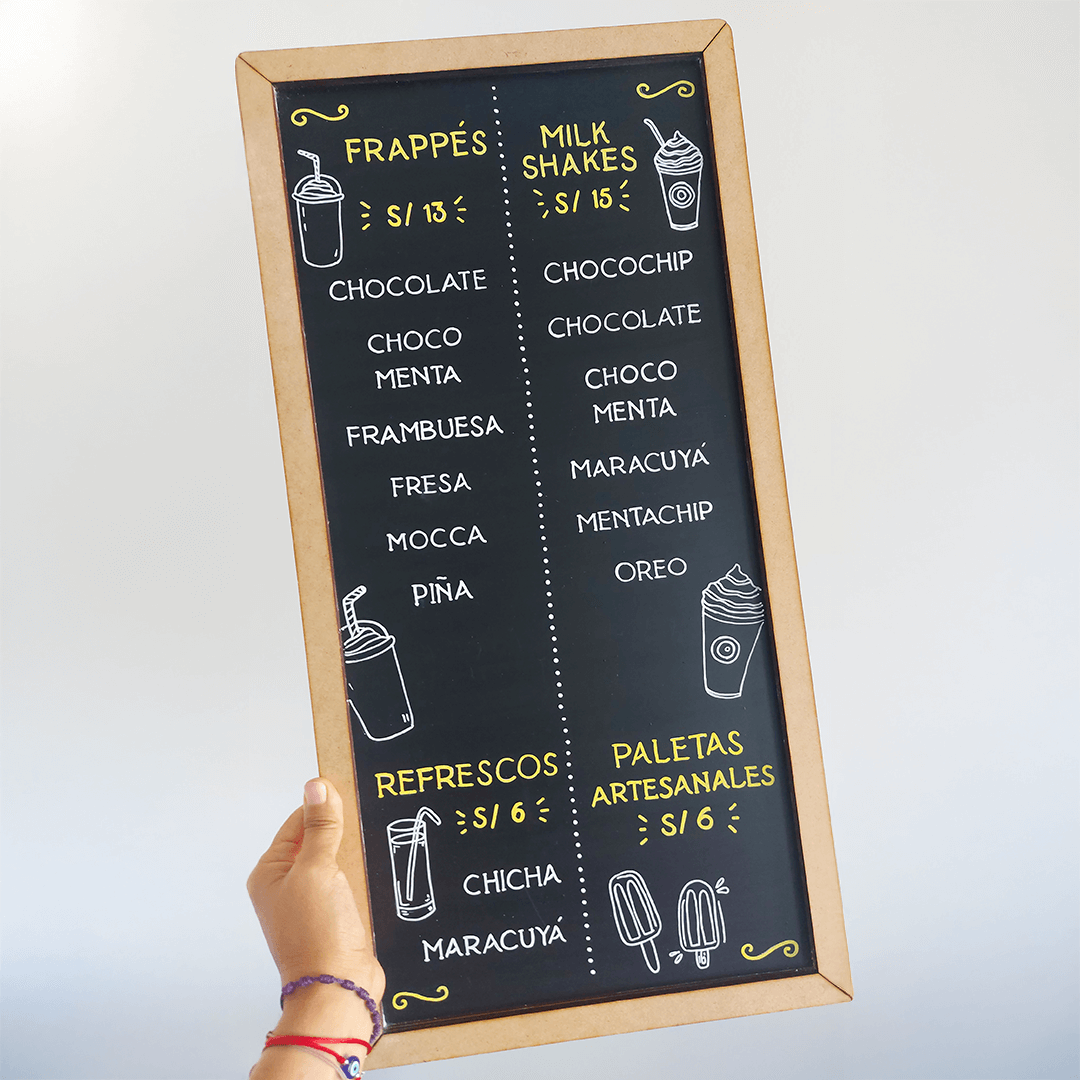 FRAPPÉS
S/ 13
CHOCOLATE
CHOCO
MENTA
FRAMBUESA
FRESA
MOCCA
PIÑA
MILK
SHAKES
S/ 15
CHOCOCHIP
CHOCOLATE
CHOCO
MENTA
MARACUYÁ
MENTACHIP
OREO
REFRESCOS
S/ 6
CHICHA
MARACUYÁ
PALETAS
ARTESANALES
S/ 6